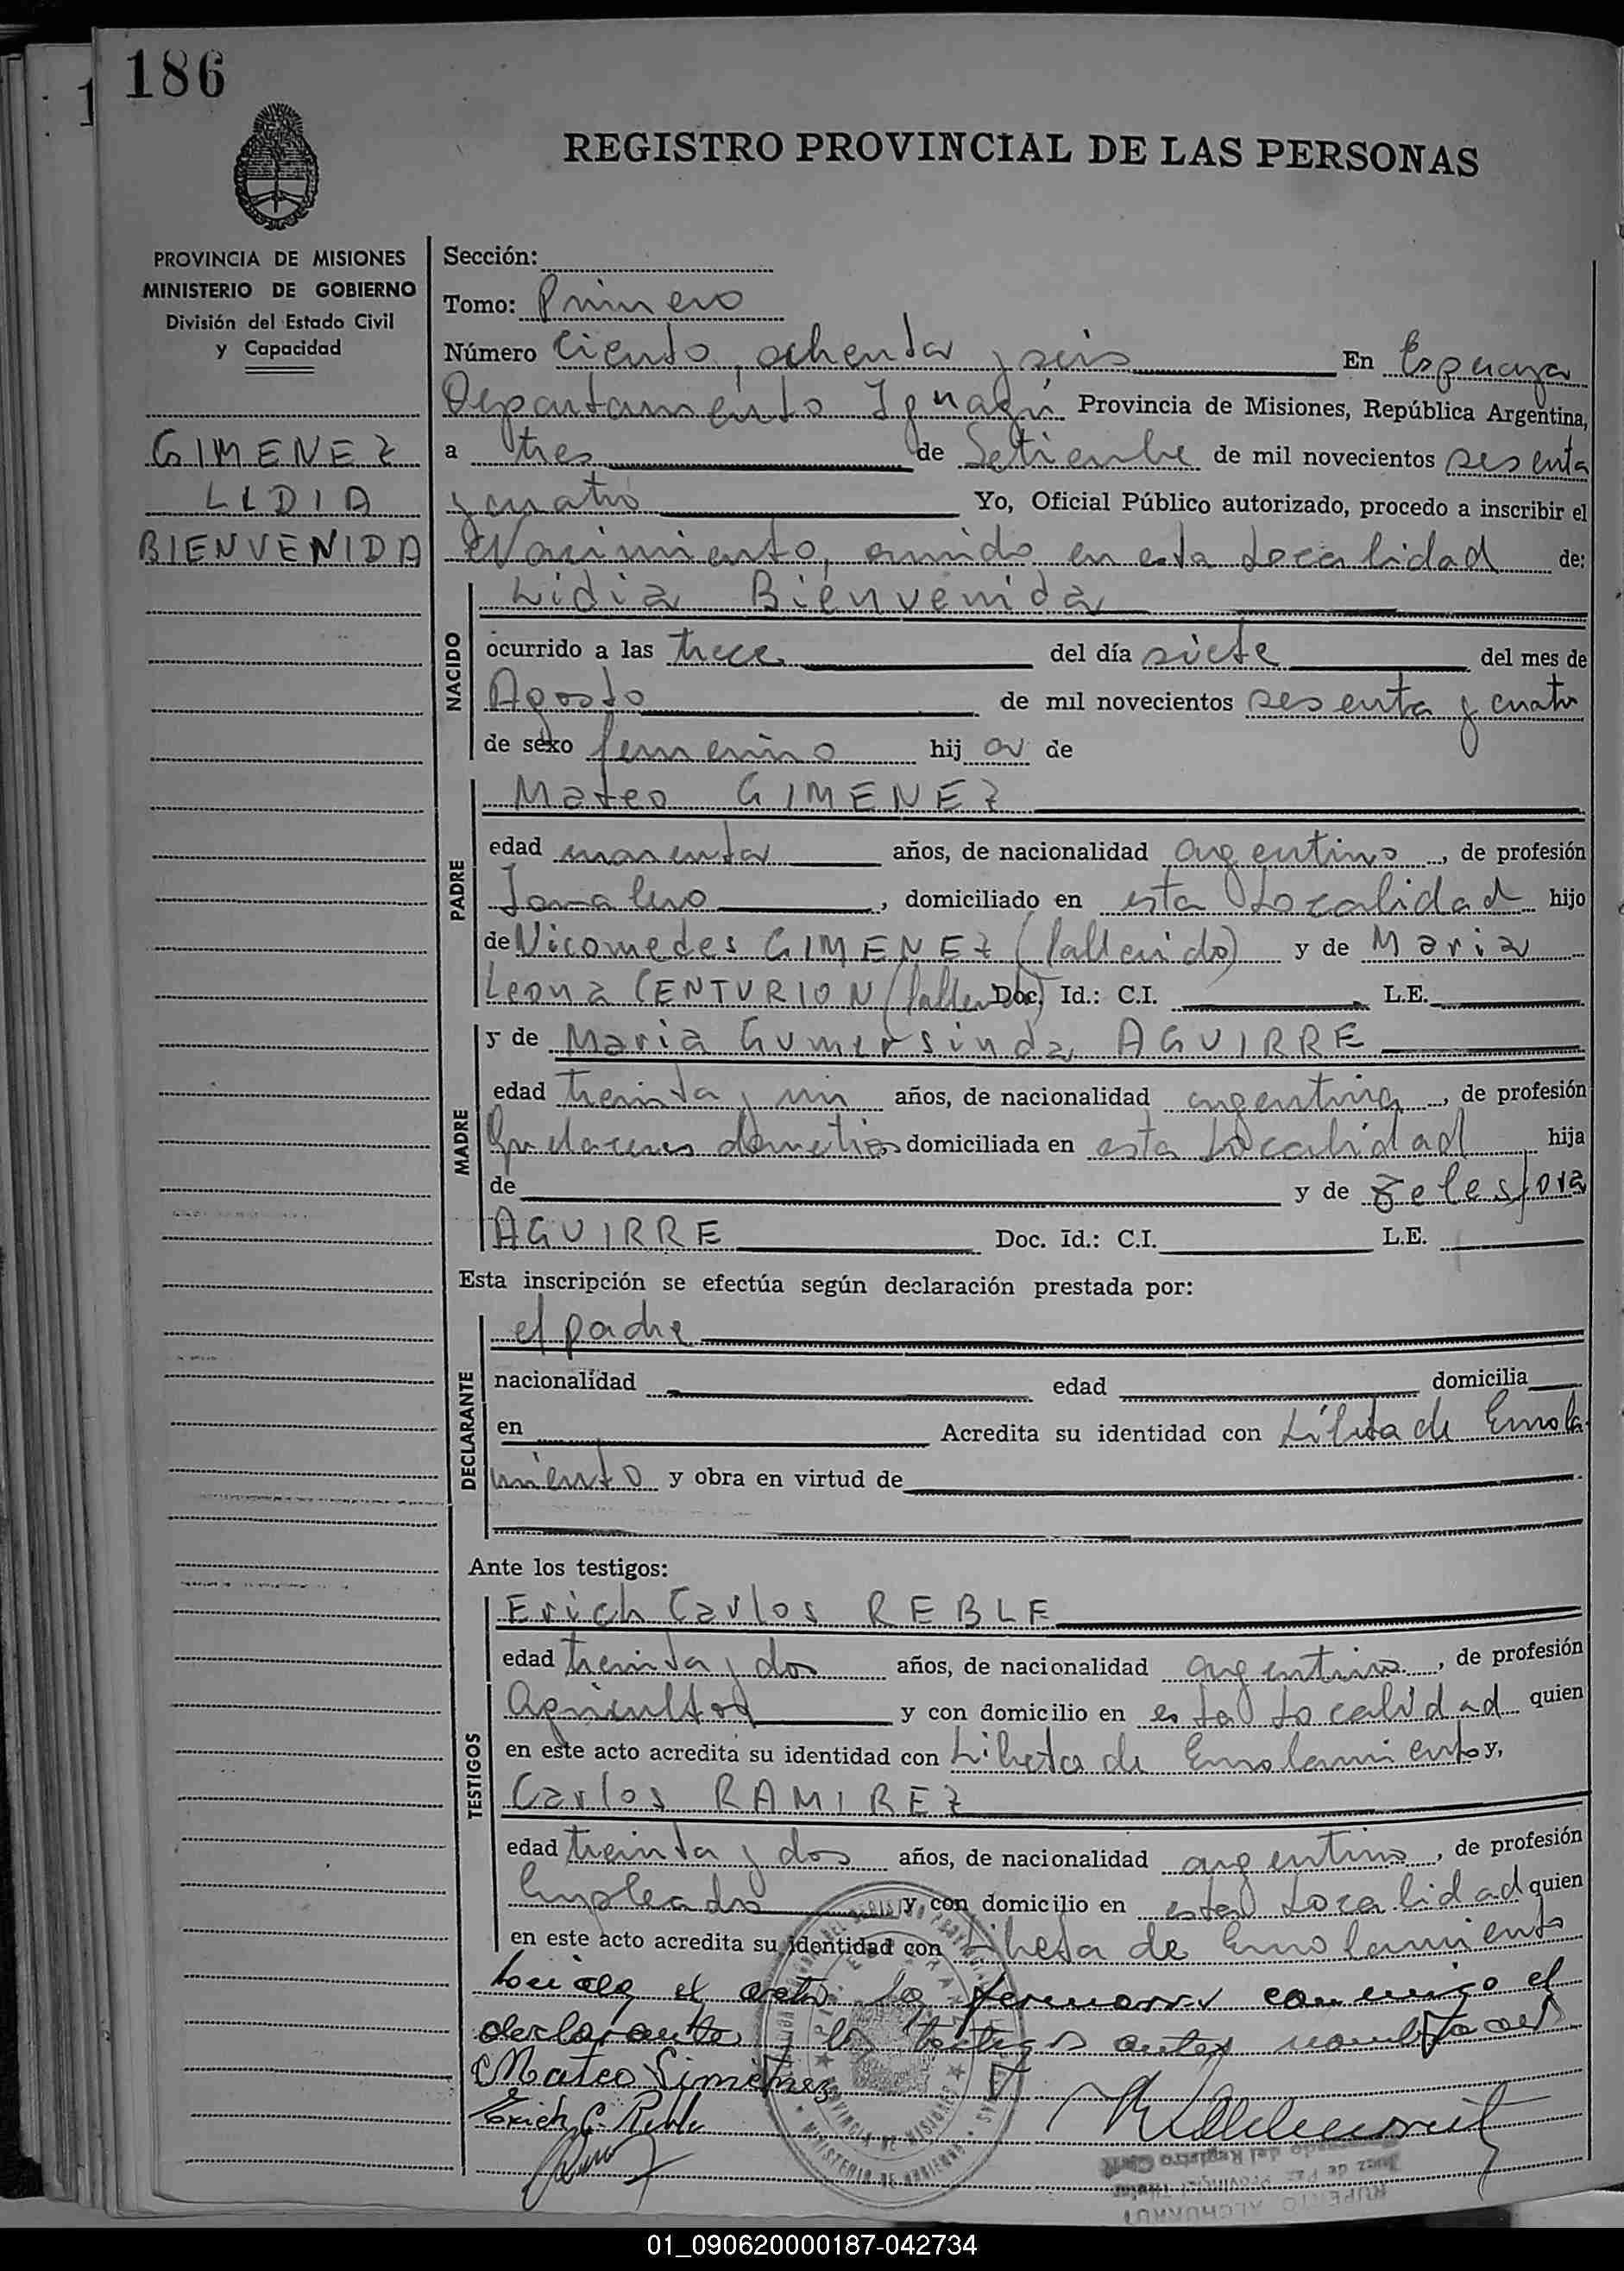 186
REGISTRO PROVINCIAL DE LAS PERSONAS
PROVINCIA DE MISIONES
MINISTERIO DE GOBIERNO
División del Estado Civil
y Capacidad
GIMENEZ
LIDIA
BIENVENIDA
Sección:
Tomo: Primero
Número Ciento ochenta y seis En Esperanza
Departamento Iguazú Provincia de Misiones, República Argentina,
a tres de Setiembre de mil novecientos sesenta
y cuatro Yo, Oficial Público autorizado, procedo a inscribir el
Nacimiento, ocurrido en esta Localidad de:
NACIDO
Lidia Bienvenida
ocurrido a las trece del día siete del mes de
Agosto de mil novecientos sesenta y cuatro
de sexo femenino hij a de
PADRE
Mateo GIMENEZ
edad cuarenta años, de nacionalidad argentino, de profesión
Jornalero, domiciliado en esta Localidad hijo
de Nicomedes GIMENEZ (fallecido) y de Maria
Leona CENTURION Doc. Id.: C.I. L.E.
MADRE
y de Maria Gumersinda AGUIRRE
edad treinta y un años, de nacionalidad argentina, de profesión
Quehaceres domesticos domiciliada en esta Localidad hija
de y de Telesfora
AGUIRRE Doc. Id.: C.I. L.E.
Esta inscripción se efectúa según declaración prestada por:
DECLARANTE
el padre
nacionalidad edad domicilia
en Acredita su identidad con Libreta de Enrola
miento y obra en virtud de
Ante los testigos:
TESTIGOS
Erich Carlos REBLE
edad treinta y dos años, de nacionalidad argentino, de profesión
Agricultor y con domicilio en esta Localidad quien
en este acto acredita su identidad con Libreta de Enrolamiento y,
Carlos RAMIREZ
edad treinta y dos años, de nacionalidad argentino, de profesión
Empleado y con domicilio en esta Localidad quien
en este acto acredita su identidad con Libreta de Enrolamiento
el acta la conmigo el
declarante y los testigos antes nombrados
Mateo Gimenez
Erich C. Reble
PROVINCIA DE MISIONES
MINISTERIO DE GOBIERNO
01_090620000187-042734